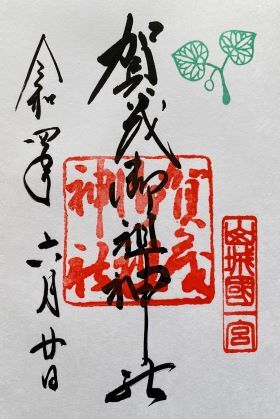 山城國一宮
賀茂御祖神社
賀茂
御祖
神社
令和四年六月廿日